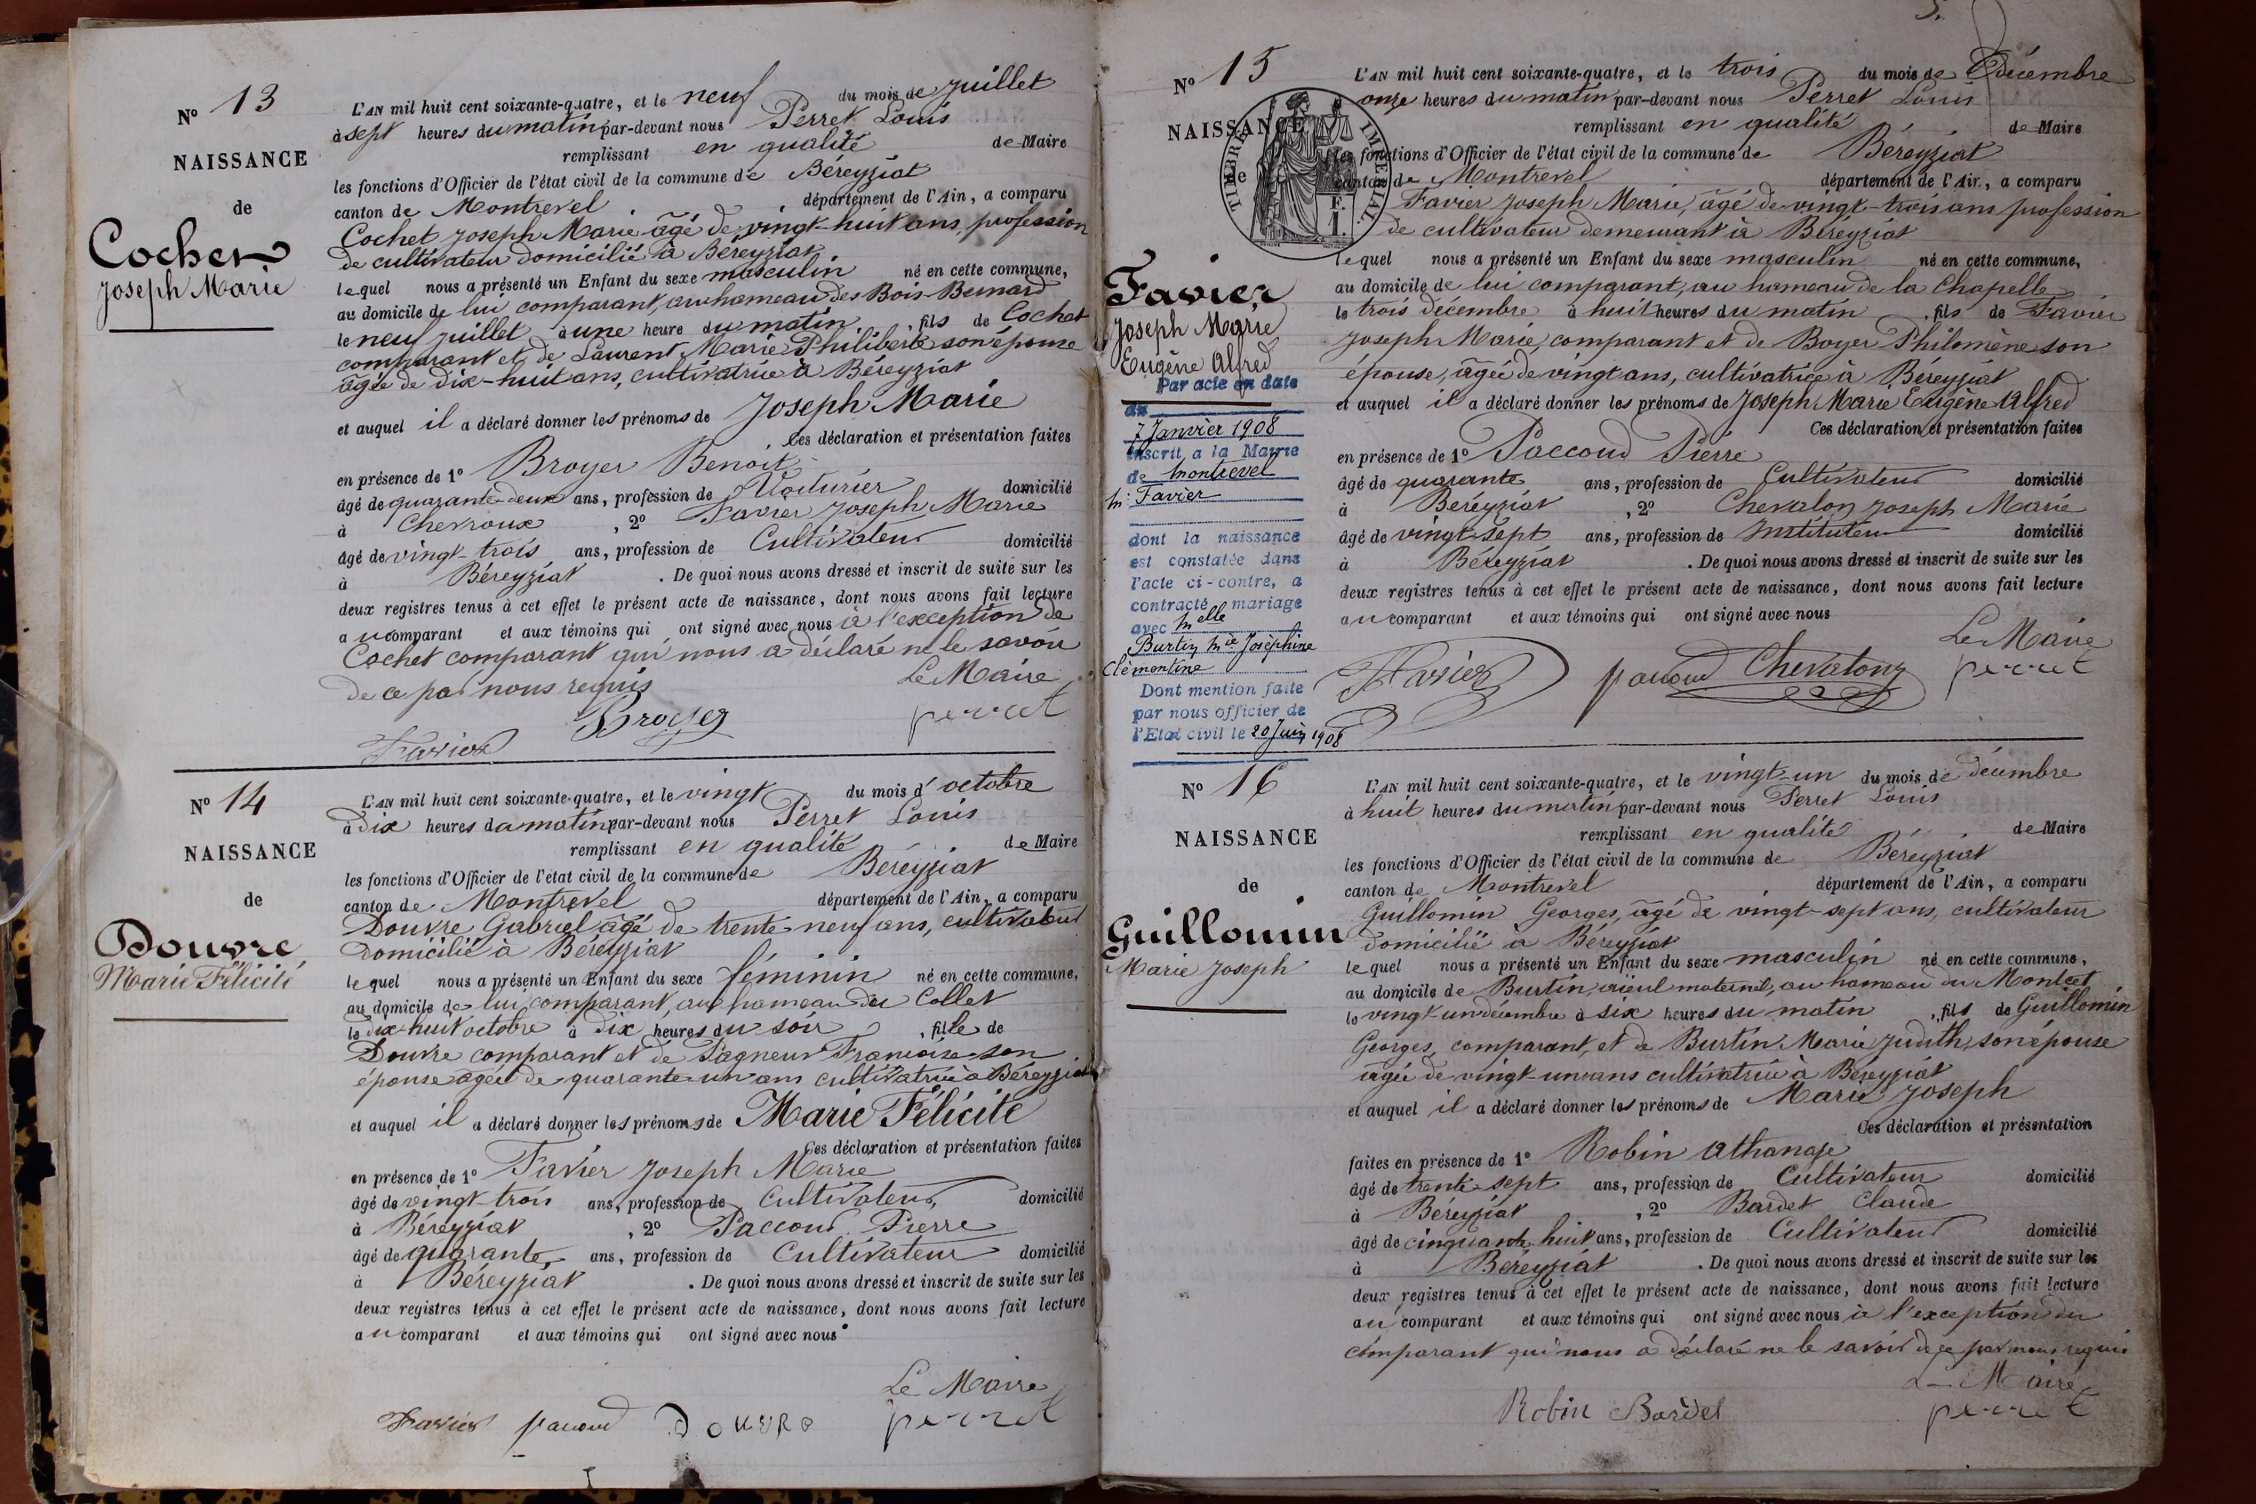 Nº 13
NAISSANCE
de
Cochet
Joseph Marie
L'AN mil huit cent soixante-quatre, et le neuf du mois de Juillet
à sept heures du matin par-devant nous Perret Louis
remplissant en qualité de Maire
les fonctions d'Officier de l'état civil de la commune de Béreyziat
canton de Montrevel département de l'Ain, a comparu
Cochet Joseph Marie âgé de vingt-huit ans, profession
de cultivateur domicilié à Béreyziat
lequel nous a présenté un Enfant du sexe masculin né en cette commune,
au domicile de lui comparant, au hameau des Bois-Bernard
le neuf Juillet à une heure du matin, fils de Cochet
comparant et de Laurent Marie Philiberte son épouse
âgée de dix-huit ans, cultivatrice à Béreyziat
et auquel il a déclaré donner les prénoms de Joseph Marie
Ces déclaration et présentation faites
en présence de 1º Broyer Benoit
âgé de quarante-deux ans, profession de Voiturier domicilié
à Chevroux, 2º Favier Joseph Marie
âgé de vingt-trois ans, profession de Cultivateur domicilié
à Béreyziat. De quoi nous avons dressé et inscrit de suite sur les
deux registres tenus à cet effet le présent acte de naissance, dont nous avons fait lecture
au comparant et aux témoins qui ont signé avec nous à l'exception de
Cochet comparant qui nous a déclaré ne le savoir
de ce par nous requis
Le Maire
Broyer perret
Favier
Nº 14
NAISSANCE
de
Douvre
Marie Félicité
L'AN mil huit cent soixante-quatre, et le vingt du mois d'octobre
à dix heures du matin par-devant nous Perret Louis
remplissant en qualité de Maire
les fonctions d'Officier de l'état civil de la commune de Béreyziat
canton de Montrevel département de l'Ain, a comparu
Douvre Gabriel âgé de trente-neuf ans, cultivateur
domicilié à Béreyziat
lequel nous a présenté un Enfant du sexe féminin né en cette commune,
au domicile de lui comparant, au hameau du Collet
le dix-huit octobre à dix heures du soir, fille de
Douvre comparant et de Pagneur Françoise son
épouse âgée de quarante-un ans cultivatrice à Béreyziat
et auquel il a déclaré donner les prénoms de Marie Félicité
Ces déclaration et présentation faites
en présence de 1º Favier Joseph Marie
âgé de vingt-trois ans, profession de Cultivateur domicilié
à Béreyziat, 2º Paccoud Pierre
âgé de quarante ans, profession de Cultivateur domicilié
à Béreyziat. De quoi nous avons dressé et inscrit de suite sur les
deux registres tenus à cet effet le présent acte de naissance, dont nous avons fait lecture
au comparant et aux témoins qui ont signé avec nous
Le Maire
Favier paccoud DOUVRE perret
5.
Nº 15
NAISSANCE
de
TIMBRE IMPÉRIAL
F.
1.
Favier
Joseph Marie
Eugène Alfred
Par acte en date
du
7 Janvier 1908
inscrit à la Mairie
de Montrevel
M: Favier
dont la naissance
est constatée dans
l'acte ci-contre, a
contracté mariage
avec Melle
Burtin Mie Josèphine
Clémentine
Dont mention faite
par nous officier de
l'Etat civil le 20 Juin 1908
L'AN mil huit cent soixante-quatre, et le trois du mois de Décembre
onze heures du matin par-devant nous Perret Louis
remplissant en qualité de Maire
les fonctions d'Officier de l'état civil de la commune de Béreyziat
canton de Montrevel département de l'Ain, a comparu
Favier Joseph Marie, âgé de vingt-trois ans profession
de cultivateur demeurant à Béreyziat
lequel nous a présenté un Enfant du sexe masculin né en cette commune,
au domicile de lui comparant, au hameau de la Chapelle
le trois décembre à huit heures du matin, fils de Favier
Joseph Marie, comparant et de Boyer Philomène son
épouse, âgée de vingt ans, cultivatrice à Béreyziat
et auquel il a déclaré donner les prénoms de Joseph Marie Eugène Alfred
Ces déclaration et présentation faites
en présence de 1º Paccoud Pierre
âgé de quarante ans, profession de Cultivateur domicilié
à Béreyziat, 2º Chevalon Joseph Marie
âgé de vingt-sept ans, profession de Instituteur domicilié
à Béreyziat. De quoi nous avons dressé et inscrit de suite sur les
deux registres tenus à cet effet le présent acte de naissance, dont nous avons fait lecture
au comparant et aux témoins qui ont signé avec nous
Le Maire
Favier paccoud Chevalon perret
Nº 16
NAISSANCE
de
Guillomin
Marie Joseph
L'AN mil huit cent soixante-quatre, et le vingt-un du mois de décembre
à huit heures du matin par-devant nous Perret Louis
remplissant en qualité de Maire
les fonctions d'Officier de l'état civil de la commune de Béreyziat
canton de Montrevel département de l'Ain, a comparu
Guillomin Georges, âgé de vingt-sept ans, cultivateur
domicilié à Béreyziat
lequel nous a présenté un Enfant du sexe masculin né en cette commune,
au domicile de Burtin, aïeul maternel, au hameau du Montcet
le vingt-un décembre à six heures du matin, fils de Guillomin
Georges, comparant, et de Burtin Marie Judith, son épouse
âgée de vingt-un ans cultivatrice à Béreyziat
et auquel il a déclaré donner les prénoms de Marie Joseph
Ces déclaration et présentation
faites en présence de 1º Robin Athanase
âgé de trente-sept ans, profession de Cultivateur domicilié
à Béreyziat, 2º Bardet Claude
âgé de cinquante-huit ans, profession de Cultivateur domicilié
à Béreyziat. De quoi nous avons dressé et inscrit de suite sur les
deux registres tenus à cet effet le présent acte de naissance, dont nous avons fait lecture
au comparant et aux témoins qui ont signé avec nous à l'exception du
comparant qui nous a déclaré ne le savoir de ce par nous requis
Le Maire
Robin Bardet perret